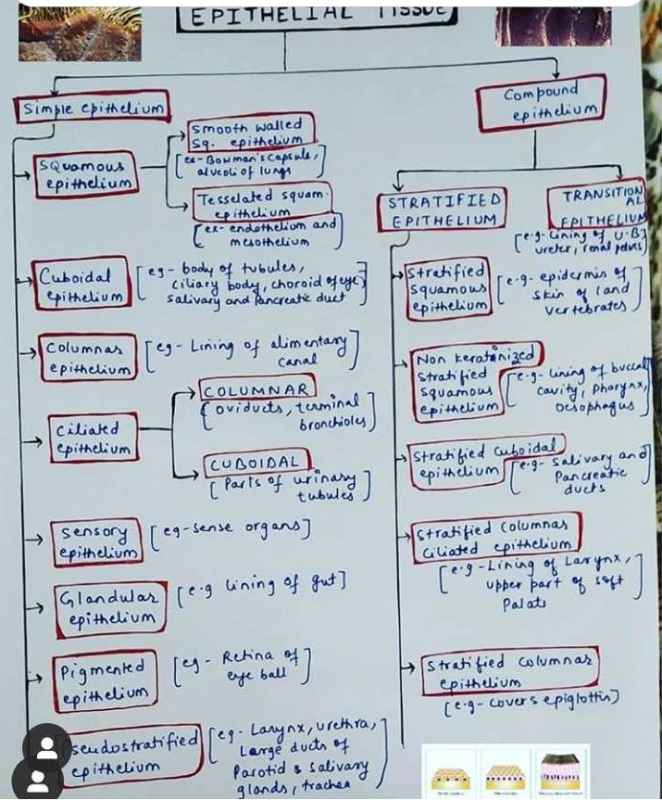 EPITHELIAL TISSUE
Simple epithelium
Compound
epithelium
Squamous
epithelium
Smooth walled
Sq. epithelium
[ex- Bowman's capsule,
alveoli of lungs]
Tesselated squam.
epithelium
[ex- endothelium and
mesothelium]
Cuboidal
epithelium
[eg- body of tubules,
ciliary body, choroid of eye,
salivary and Pancreatic duct]
Columnar
epithelium
[eg- Lining of alimentary
canal]
Ciliated
epithelium
COLUMNAR
[oviducts, terminal
bronchioles]
CUBOIDAL
[Parts of urinary
tubules]
Sensory
epithelium
[eg-sense organs]
Glandular
epithelium
[e.g lining of gut]
Pigmented
epithelium
[eg- Retina of
eye ball]
Pseudostratified
epithelium
[eg- Larynx, urethra,
Large ducts of
Parotid & Salivary
glands, trachea]
STRATIFIED
EPITHELIUM
TRANSITION
AL
EPITHELIUM
[e.g. lining of U.B,
ureter, renal pelvis]
Stratified
Squamous
epithelium
[e.g- epidermis of
skin of land
vertebrates]
Non keratinized
Stratified
Squamous
epithelium
[e.g- Lining of buccal
cavity, pharynx,
oesophagus]
Stratified cuboidal
epithelium
[e.g- Salivary and
Pancreatic
ducts]
Stratified Columnar
Ciliated epithelium
[e.g- Lining of Larynx,
upper part of soft
Palate]
Stratified columnar
epithelium
[e.g- covers epiglottis]